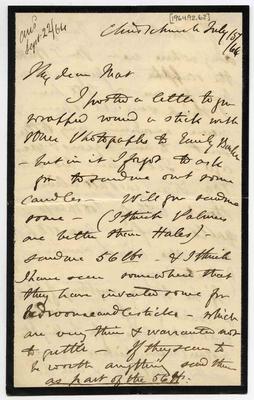 ans
Sept 22/66
[1964.92.62]
Christchurch July 15/
66
My dear Mat
I posted a letter to you
wrapped round a stick with
some Photographs to Emily
- but in it I forgot to ask
you to send me out some
candles - Will you send me
some - (I think Palmers
are better than Hales) -
send me 56 lbs - & I think
I have seen somewhere that
they have invented some for
bedroom candlesticks - which
are very thin & warranted not
to guttle - If they seem to
be worth anything send them
as part of the 56 lb.